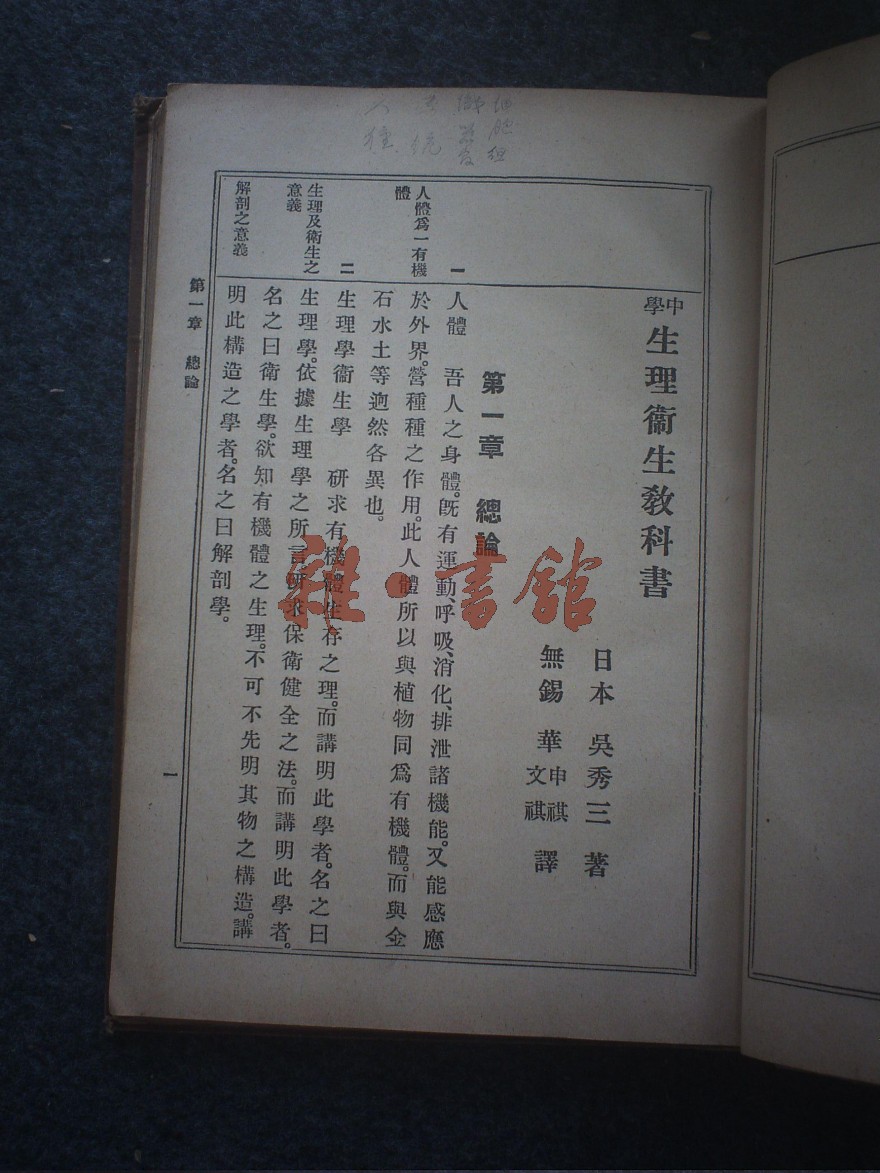 中學 生理衞生敎科書
日本 吳秀三 著
無錫 華申祺 文祺 譯
第一章 總論
一
人體爲一有機
體
人體 吾人之身體。旣有運動、呼吸、消化、排泄諸機能。又能感應
於外界。營種種之作用。此人體所以與植物同爲有機體。而與金
石水土等逈然各異也。
二
生理及衞生之
意義
生理學衞生學 硏求有機體生存之理。而講明此學者。名之曰
生理學。依據生理學之所言。硏求保衛健全之法。而講明此學者。
名之曰衛生學。欲知有機體之生理。不可不先明其物之構造。講
解剖之意義
明此構造之學者。名之曰解剖學。
第一章 總論
一
雜·書館